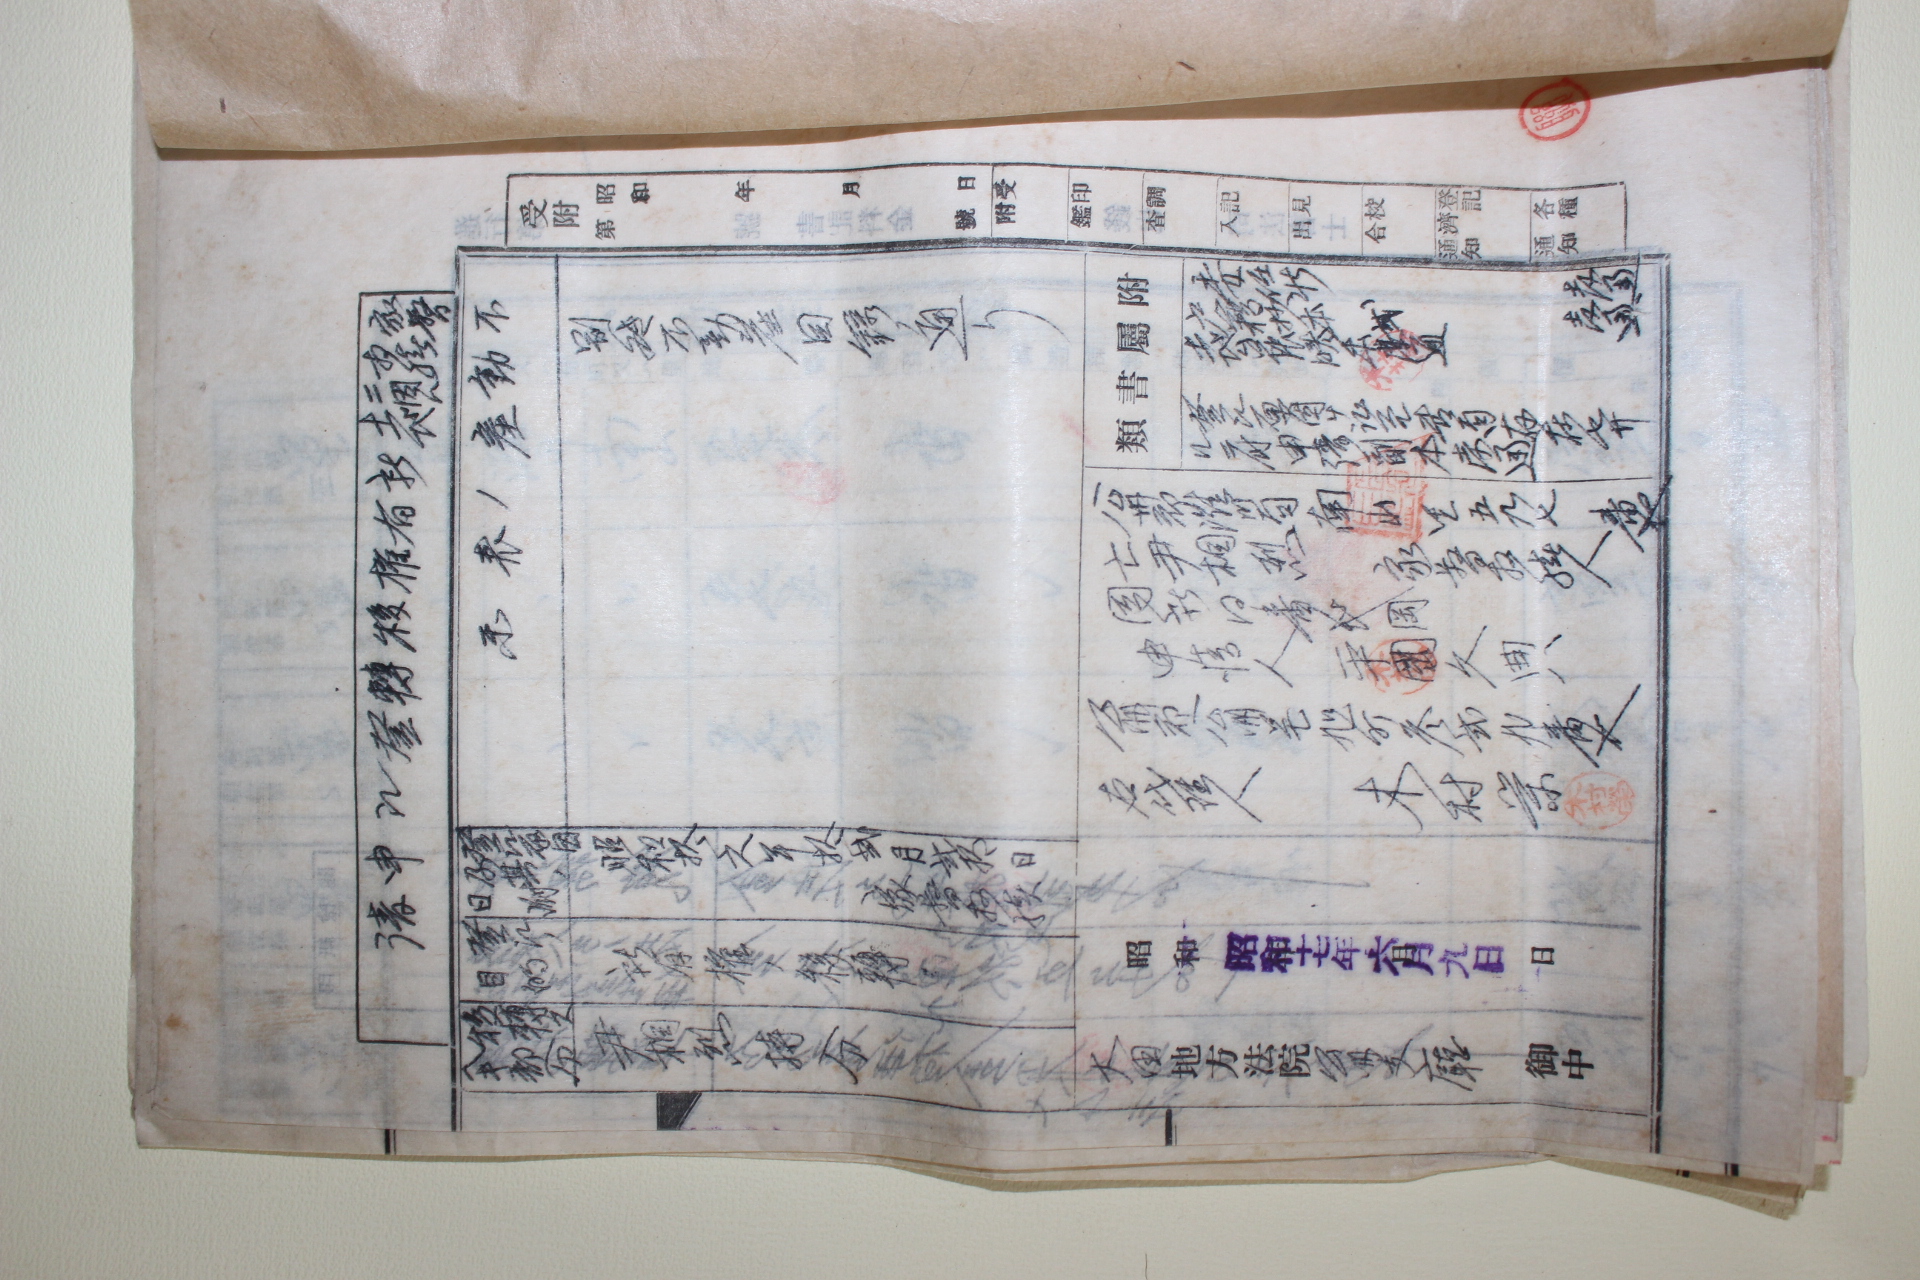 家督相續ニ因ル土地所有權移轉登記申請
受附 昭和 年 月 日
第 號
受附
印鑑
調査
記入
見出
校合
登記濟通知
各種通知
不動産ノ表示
別紙不動産目録ノ通リ
登記原因及其ノ日附
昭和拾六年拾貳月貳拾日
家督相續
登記ノ目的
所有權ノ移轉
移轉スヘキ部分
尹相烈持分
附屬書類
委任狀 壹通
戸籍抄本 壹通
土地台帳謄本 貳通
登記原因ヲ証スル書面存在セサ
ル付申請副本壹通
公州郡灘川面南山里五九七番地
亡尹相烈 家督相續人
同所同番地
申請人 平岡久興
公州郡公州邑旭町参貳九番地
右代理人 木村榮
木村榮
昭和 日
昭和十七年六月九日
大田地方法院公州支廳 御中